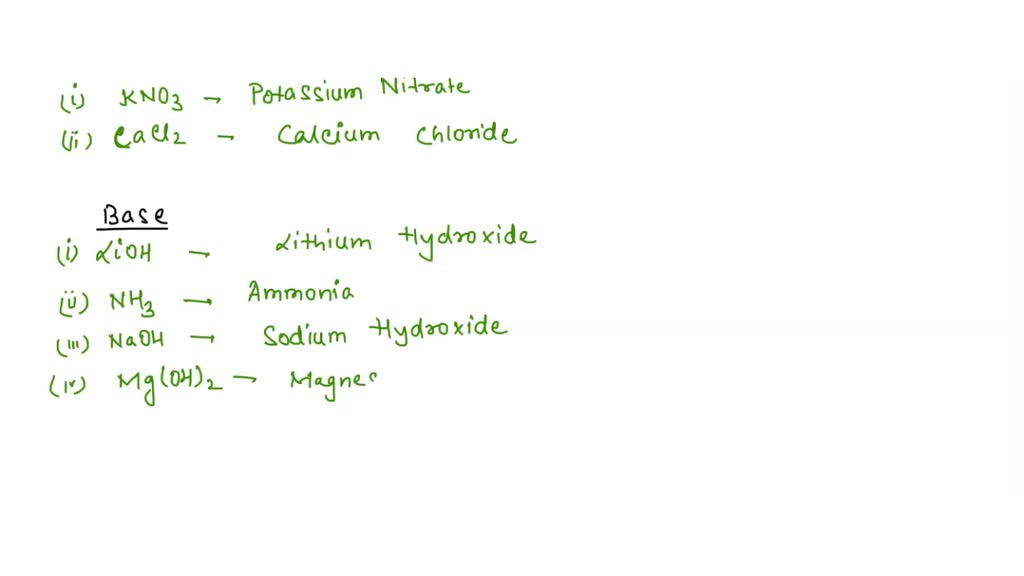 (i) KNO3 → Potassium Nitrate
(ii) CaCl2 → Calcium Chloride
Base
(i) LiOH → Lithium Hydroxide
(ii) NH3 → Ammonia
(iii) NaOH → Sodium Hydroxide
(iv) Mg(OH)2 → Magnes